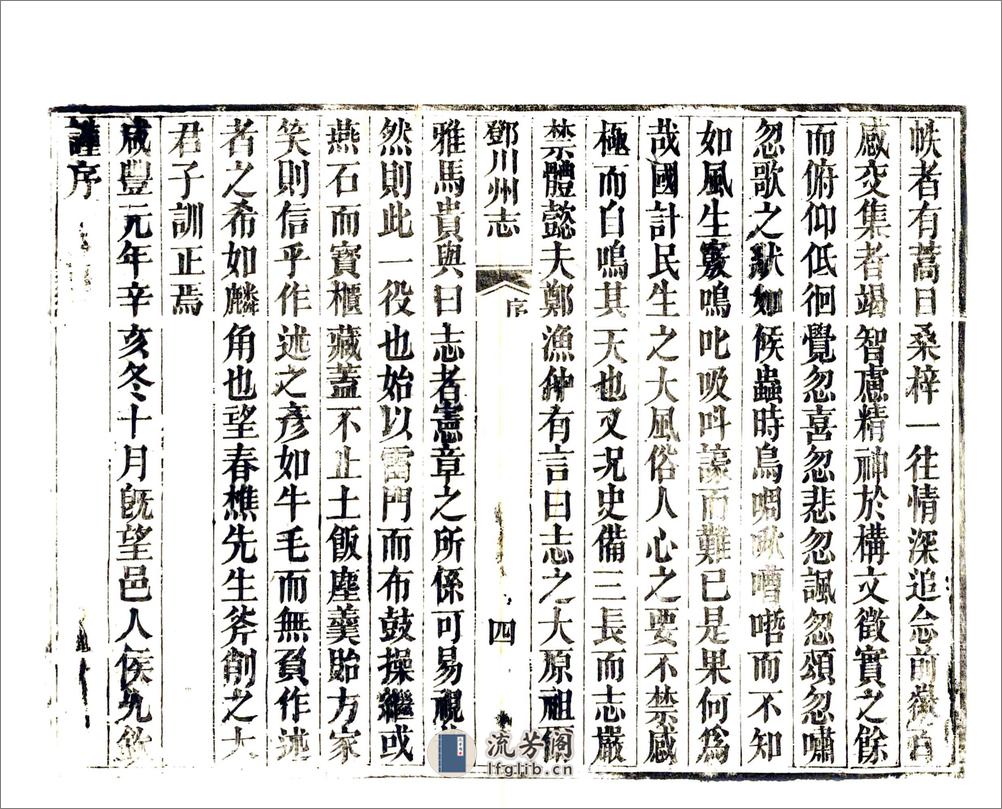 帙者有蒿目桑梓一往情深追念前徽百
感交集者竭智慮精神於構文徵實之餘
而俯仰低徊覺忽喜忽悲忽諷忽頌忽嘯
忽歌之狀如候蟲時鳥啁啾嘈喈而不知
如風生竅鳴叱吸叫譹而難已是果何為
哉國計民生之大風俗人心之要不禁感
極而自鳴其天也又况史備三長而志嚴
禁體懿夫鄭漁仲有言曰志之大原祖爾
鄧川州志
序
四
雅馬貴與曰志者憲章之所係可易視
然則此一役也始以雷門而布鼓操繼或
燕石而寶櫃藏蓋不止土飯塵羹貽方家
笑則信乎作述之彥如牛毛而無負作述
者之希如麟角也望春樵先生斧削之大
君子訓正焉
咸豐元年辛亥冬十月既望邑人侯允欽
謹序
流芳閣
lfglib.cn